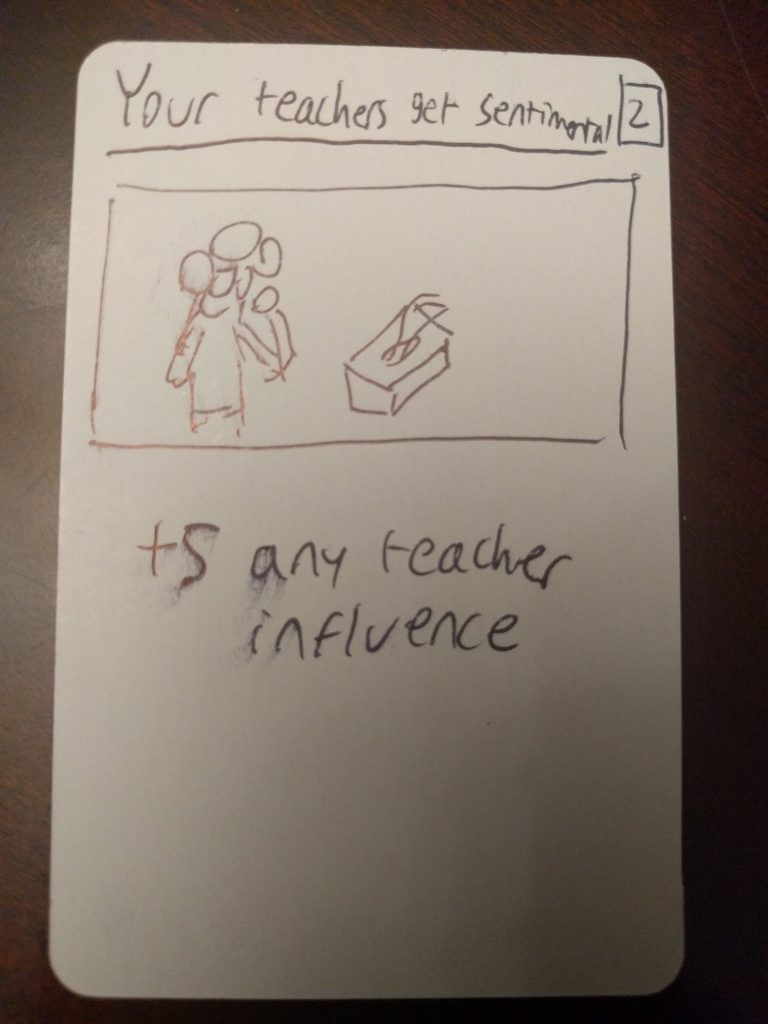 Your teachers get sentimental 2
+5 any teacher
influence